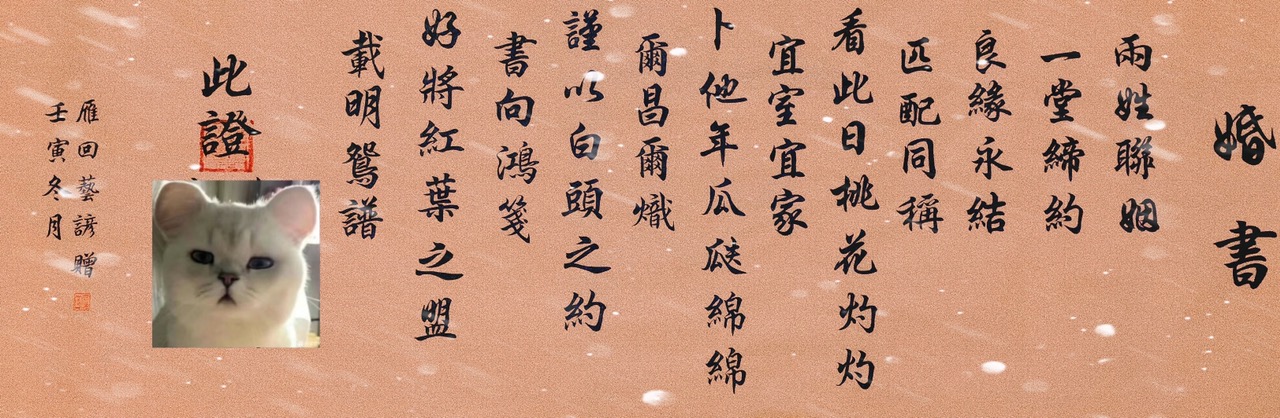 婚書
兩姓聯姻
一堂締約
良緣永結
匹配同稱
看此日桃花灼灼
宜室宜家
卜他年瓜瓞綿綿
爾昌爾熾
謹以白頭之約
書向鴻箋
好將紅葉之盟
載明鴛譜
此證
雁回藝諺贈
壬寅冬月